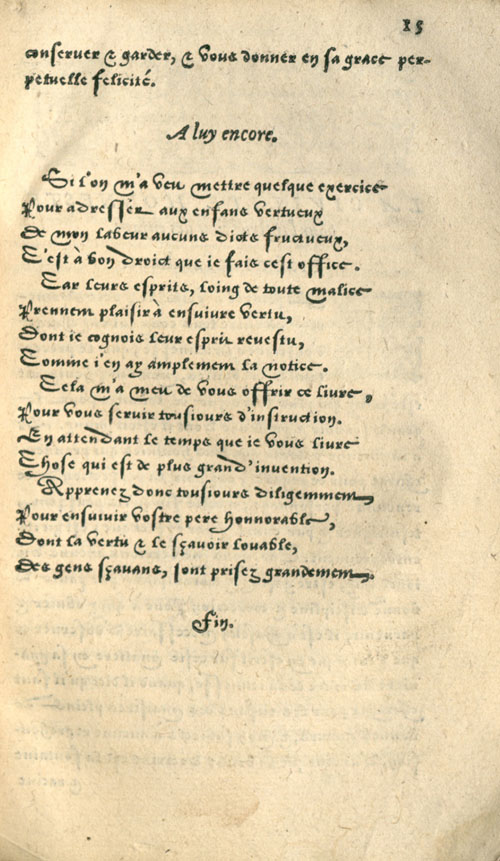 15
conserver & garder, & vous donner en sa grace per-
petuelle felicité.
A luy encore.
Si l'on m'a veu mettre quelque exercice
Pour adresser aux enfans vertueux
De mon labeur aucuns dicts fructueux,
C'est à bon droict que ie fais cest office.
Car leurs esprits, loing de toute malice
Prennent plaisir à ensuivre vertu,
Dont ie cognois leur esprit revestu,
Comme i'en ay amplement la notice.
Cela m'a meu de vous offrir ce livre,
Pour vous servir tousiours d'instruction.
En attendant le temps que ie vous livre
Chose qui est de plus grand' invention.
Apprenez donc tousiours diligemment,
Pour ensuivir vostre pere honnorable,
Dont la vertu & le sçavoir louable,
Des gens sçavans, sont prisez grandement.
Fin.